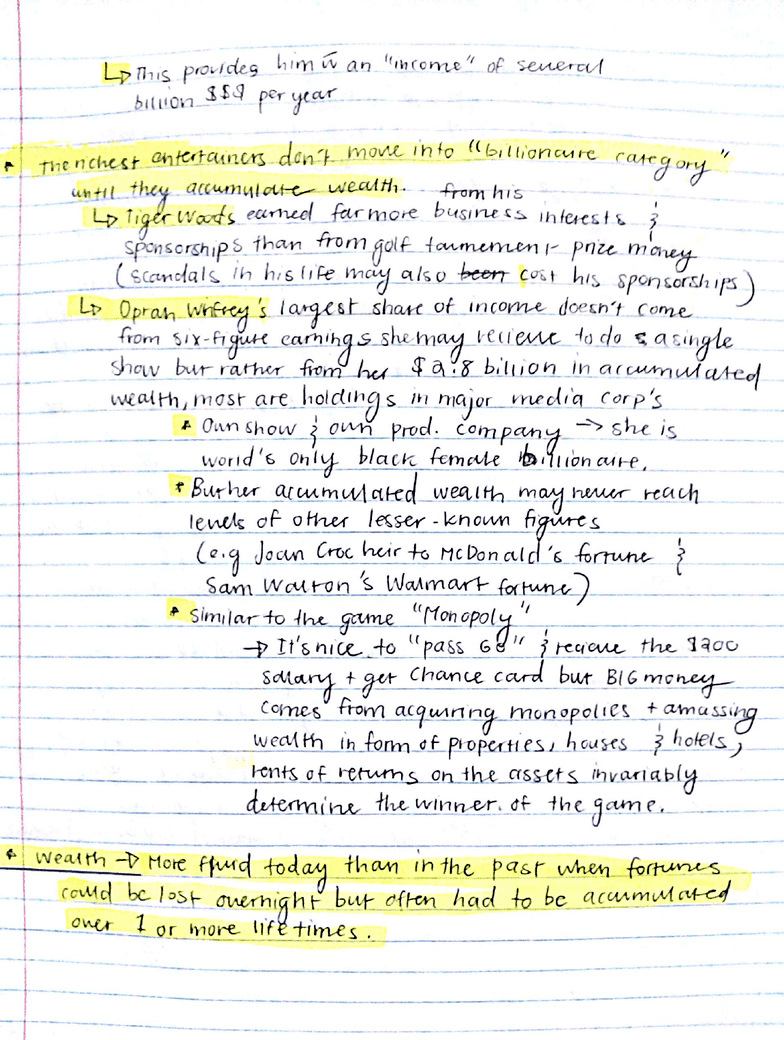 ↳ This provides him w̄ an "income" of several
billion $$$ per year
* The richest entertainers don't move into "billionaire category"
until they accumulate wealth. from his
↳ Tiger Woods earned far more business interests &
sponsorships than from golf tournement prize money
(scandals in his life may also been cost his sponsorships)
↳ Oprah Winfrey's largest share of income doesn't come
from six-figure earnings she may recieve to do a single
show but rather from her $2.8 billion in accumulated
wealth, most are holdings in major media corp's
* Own show & own prod. company → she is
world's only black female billionaire.
* But her accumulated wealth may never reach
levels of other lesser-known figures
(e.g Joan Croc heir to McDonald's fortune &
Sam Walton's Walmart fortune)
* Similar to the game "Monopoly"
→ It's nice to "pass GO" & recieve the $200
salary + get Chance card but BIG money
comes from acquiring monopolies + amassing
wealth in form of properties, houses & hotels,
rents of returns on the assets invariably
determine the winner. of the game.
* Wealth → More fluid today than in the past when fortunes
could be lost overnight but often had to be accumulated
over 1 or more lifetimes.